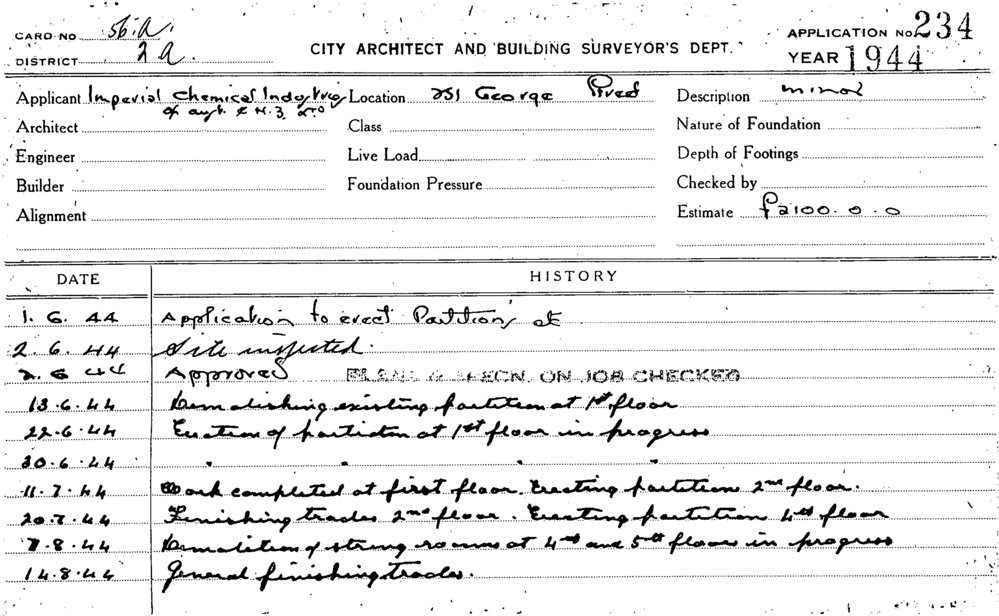 CARD NO. 56.A. APPLICATION No. 234
DISTRICT 2a. CITY ARCHITECT AND BUILDING SURVEYOR'S DEPT. YEAR 1944
Applicant Imperial Chemical Industries Location 251 George Street Description minor
of Aust. & N.Z. LTD
Architect Class Nature of Foundation
Engineer Live Load Depth of Footings
Builder Foundation Pressure Checked by
Alignment Estimate £2100.0.0
DATE HISTORY
1. 6. 44 Application to erect Partitions at
2. 6. 44 Site inspected.
2 6 44 Approved PLANS & SPECN. ON JOB CHECKED
13.6.44 Demolishing existing partition at 1st floor
22.6.44 Erection of partition at 1st floor in progress
30.6.44 " " " "
11.7.44 Work completed at first floor. Erecting partition 2nd floor.
20.7.44 Finishing trades 2nd floor. Erecting partition 4th floor
7.8.44 Demolition of strong rooms at 4th and 5th floors in progress
14.8.44 General finishing trades.